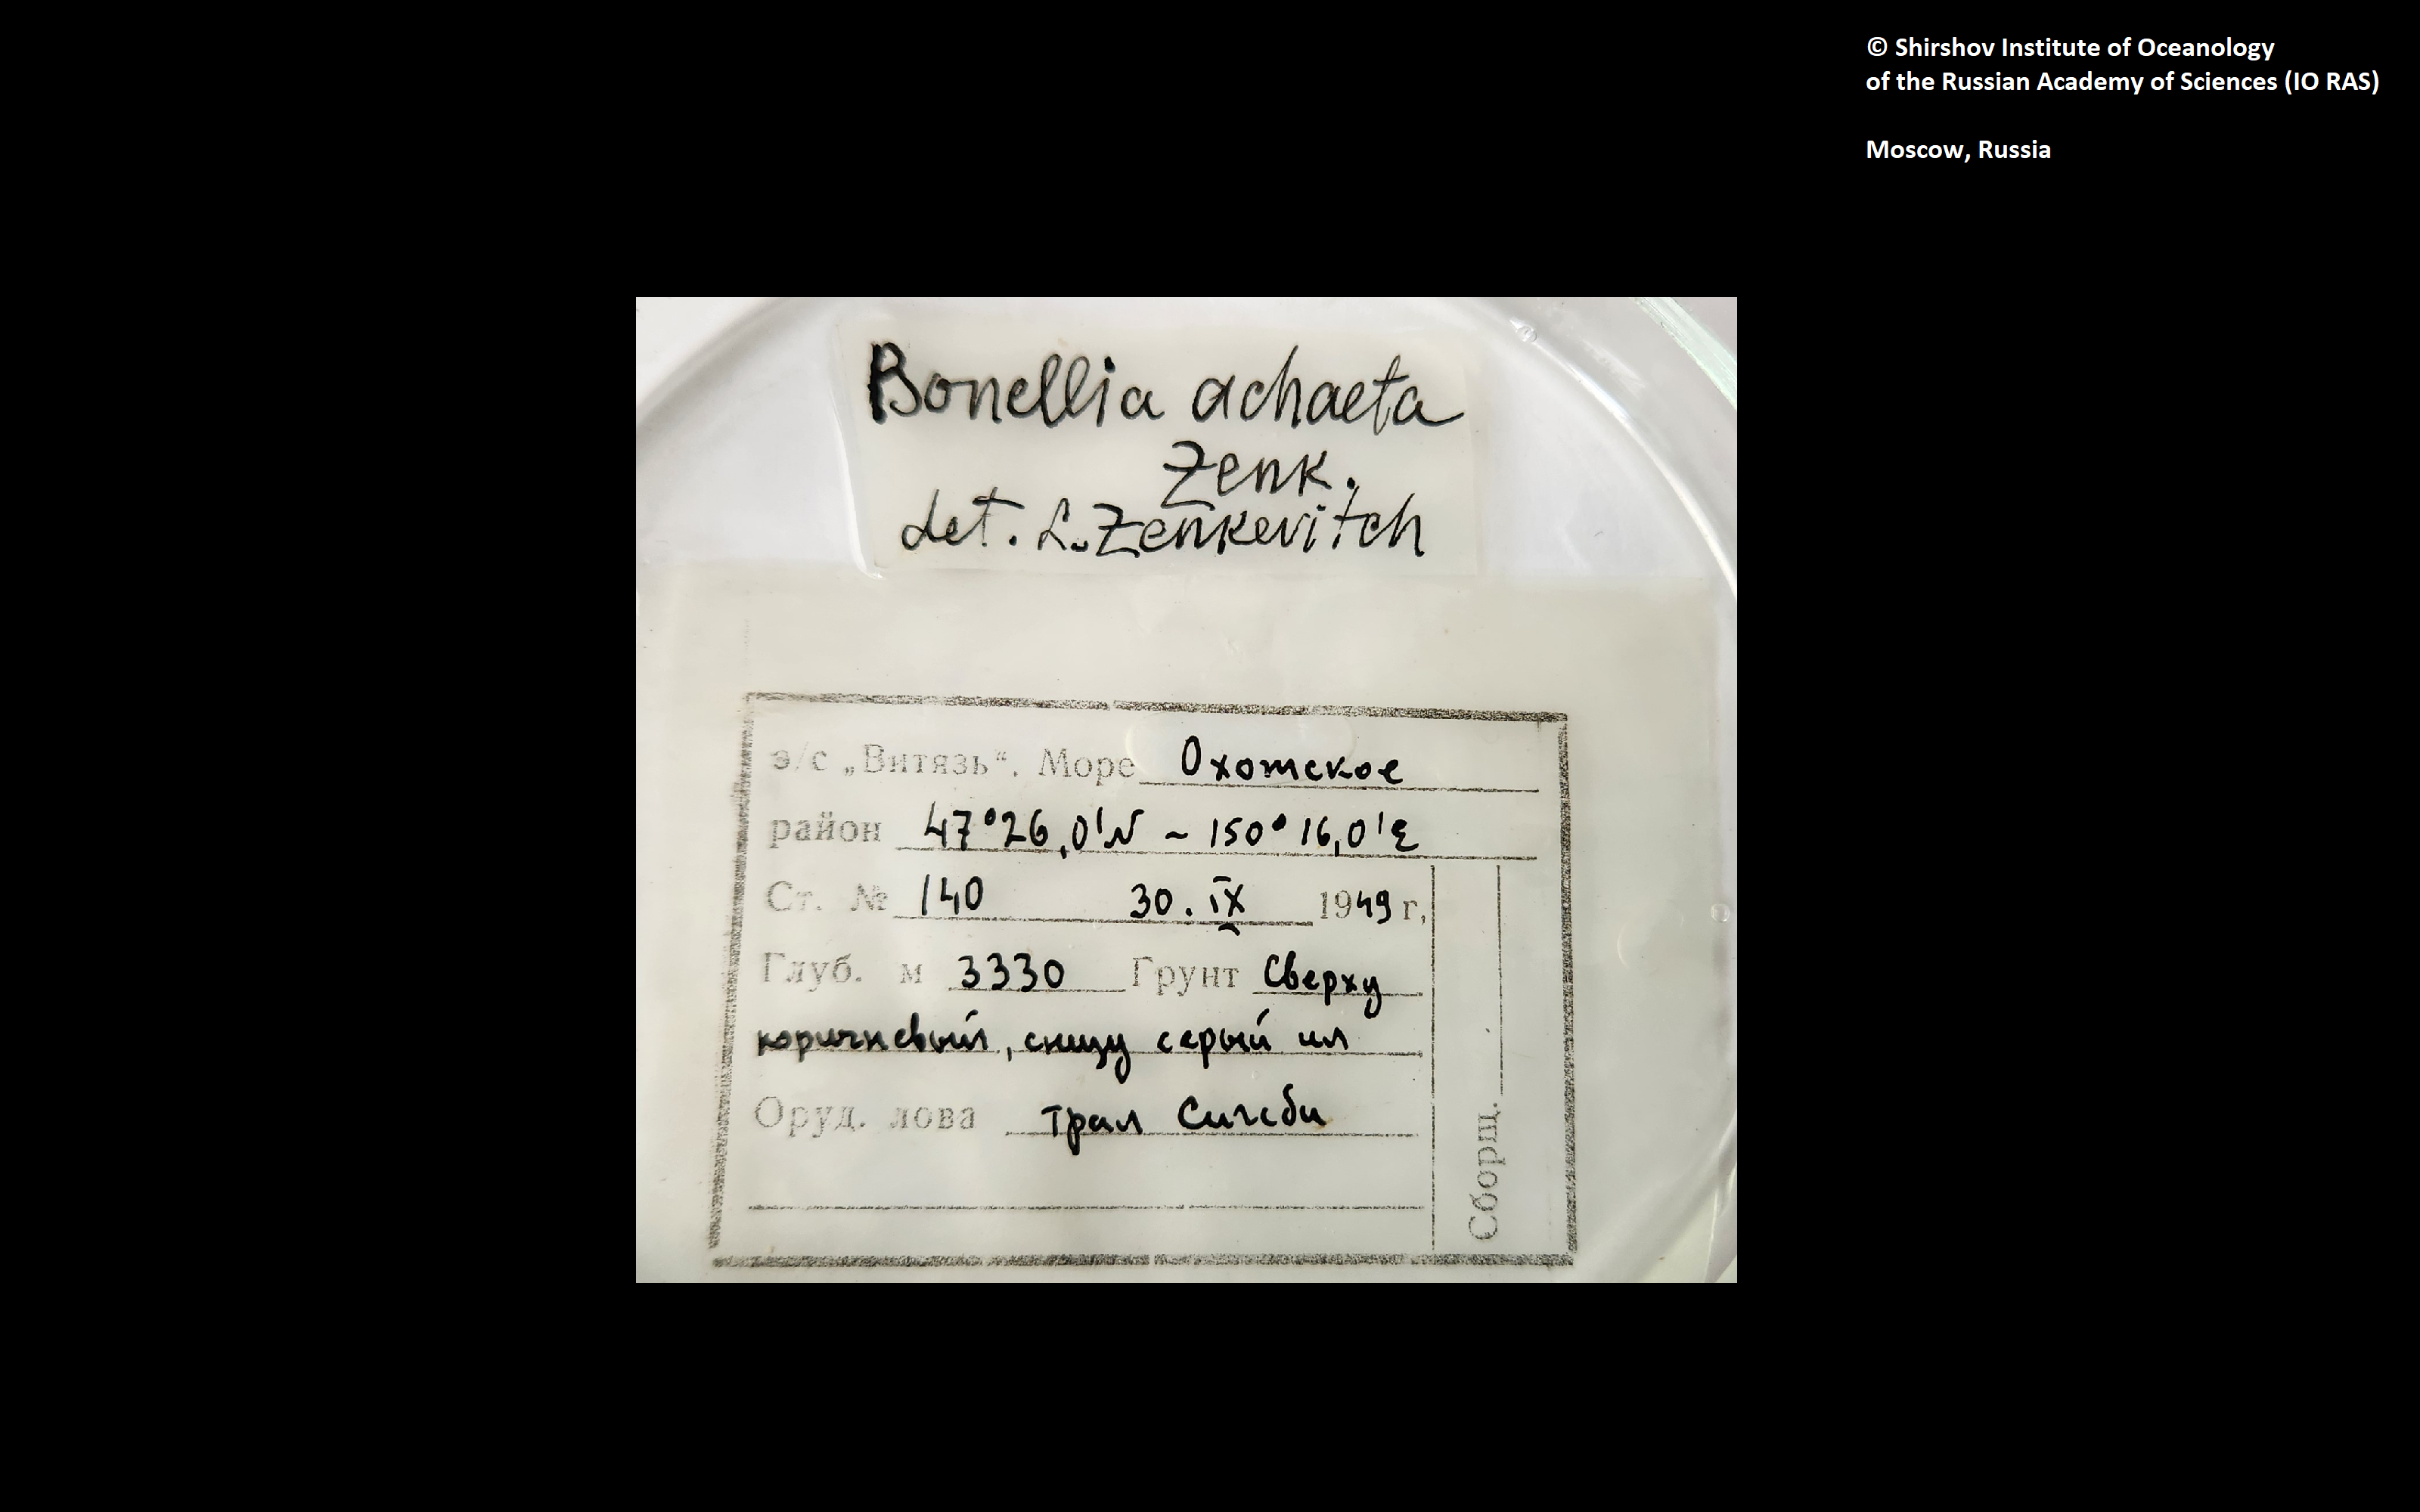 © Shirshov Institute of Oceanology
of the Russian Academy of Sciences (IO RAS)
Moscow, Russia
Bonellia achaeta
Zenk.
det. L. Zenkevitch
э/с „Витязь“. Море Охотское
район 47°26,0'N ~ 150°16,0'E
Ст. № 140 30.IX 1949 г,
Глуб. м 3330 Грунт Сверху
коричневый, снизу серый ил
Оруд. лова Трал Сигсби
Сборщ.